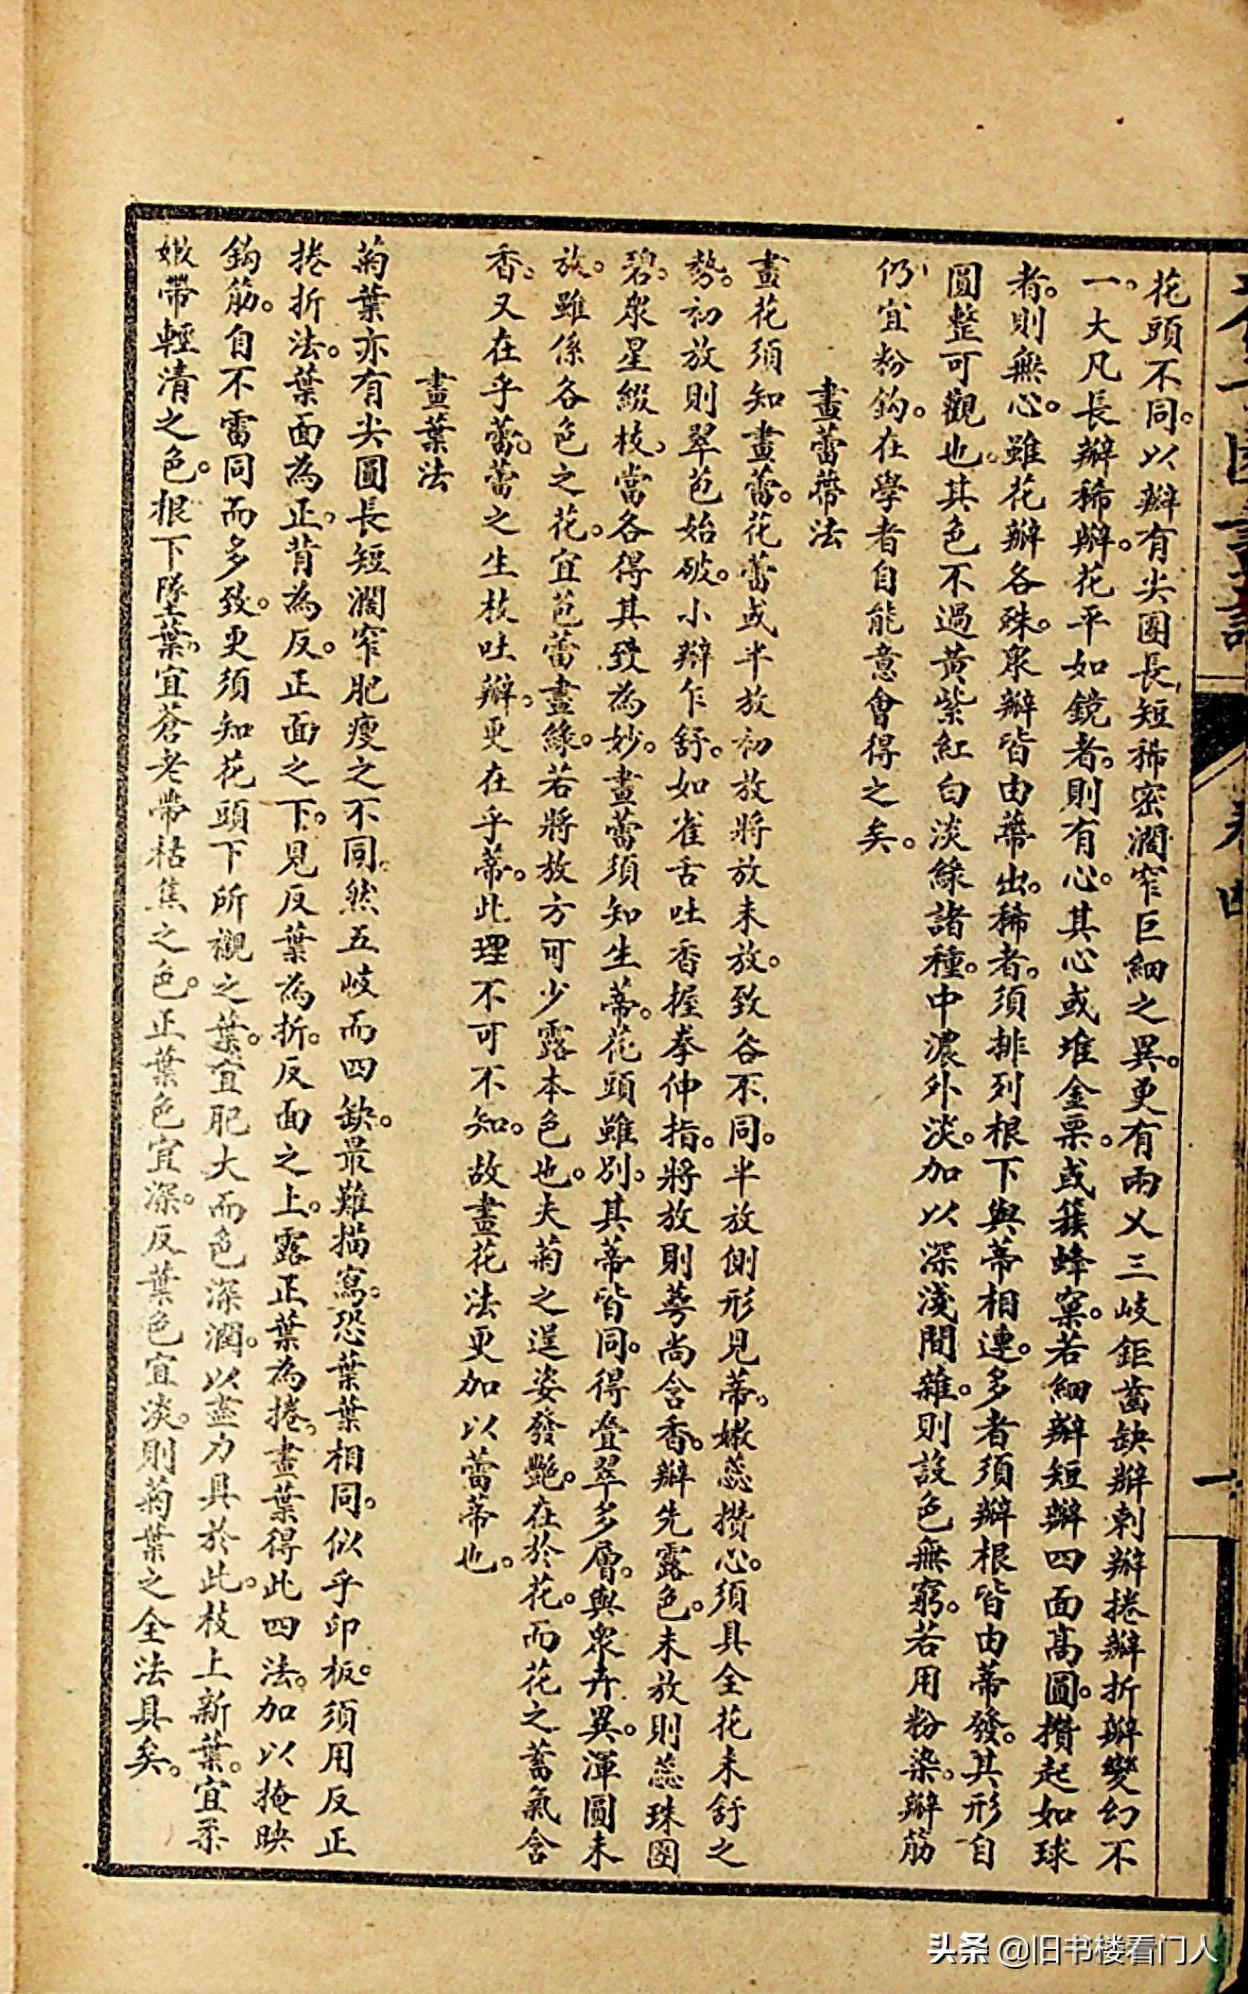 花頭不同。以瓣有尖圓長短稀密濶窄巨細之異。更有兩义三岐鉅齒缺瓣刺瓣捲瓣折瓣變幻不
一。大凡長瓣稀瓣。花平如鏡者。則有心。其心或堆金粟。或簇蜂窠。若細瓣短瓣四面高圓。攢起如球
者。則無心。雖花瓣各殊。衆瓣皆由蒂出。稀者。須排列根下與蒂相連。多者須瓣根皆由蒂發。其形自
圓整可觀也。其色不過黃紫紅白淡綠諸種。中濃外淡。加以深淺間雜。則設色無窮。若用粉染。瓣筋
仍宜粉鈎。在學者自能意會得之矣。
畫蕾蒂法
畫花須知畫蕾。花蕾或半放初放將放未放。致各不同。半放側形見蒂。嫩蕊攢心。須具全花未舒之
勢。初放則翠苞始破。小瓣乍舒。如雀舌吐香握拳伸指。將放則萼尚含香。瓣先露色。未放則蕊珠團
碧。衆星綴枝。當各得其致為妙。畫蕾須知生蒂。花頭雖別。其蒂皆同。得叠翠多層。與衆卉異。渾圓未
放。雖係各色之花。宜苞蕾畫綠。若將放方可少露本色也。夫菊之逞姿發艷。在於花。而花之蓄氣含
香。又在乎蕾。蕾之生枝吐瓣。更在乎蒂。此理不可不知。故畫花法更加以蕾蒂也。
畫葉法
菊葉亦有尖圓長短濶窄肥瘦之不同。然五岐而四缺。最難描寫。恐葉葉相同。似乎印板。須用反正
捲折法。葉面為正。背為反。正面之下。見反葉為折。反面之上。露正葉為捲。畫葉得此四法。加以掩映
鈎筋。自不雷同而多致。更須知花頭下所襯之葉。宜肥大而色深潤。以盡力具於此。枝上新葉。宜柔
嫩帶輕清之色。根下墜葉。宜蒼老帶枯焦之色。正葉色宜深。反葉色宜淡。則菊葉之全法具矣。
卷四
一
头条 @旧书楼看门人